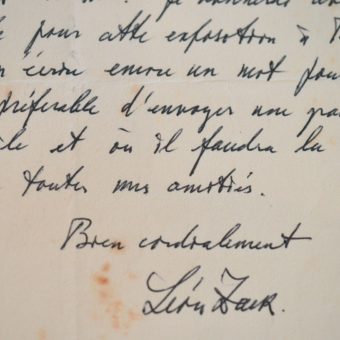 pour cette exposition à
écrire encore un mot pour
préférable d'envoyer non pa
et où il faudra la
toutes mes amitiés.
Bien cordialement
Léon Zack.